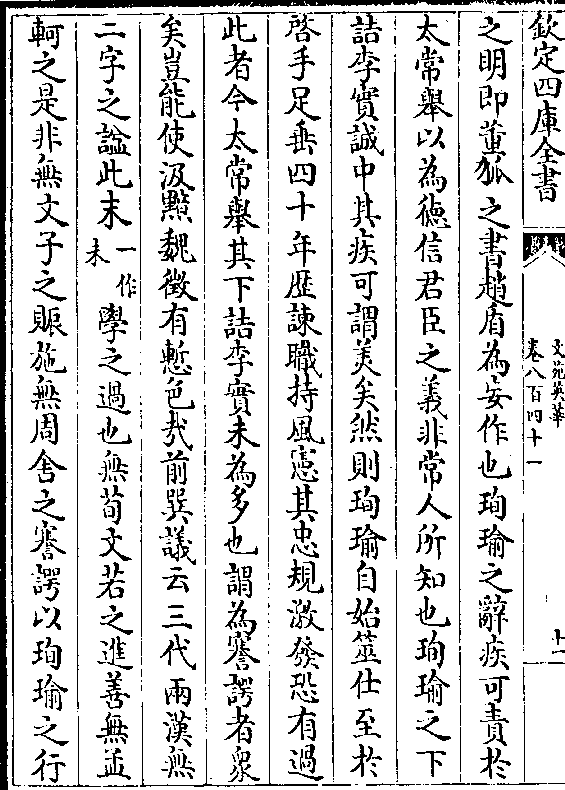 欽定四庫全書
文苑英華
卷八百四十一
十一
之明即董狐之書趙盾為妄作也珣瑜之辭疾可責於
太常舉以為徳信君臣之義非常人所知也珣瑜之下
詰李實誠中其疾可謂美矣然則珣瑜自始筮仕至於
啓手足垂四十年歴諫職持風憲其忠規激發恐有過
此者今太常舉其下詰李實未為多也謂為謇諤者衆
矣豈能使汲黯魏徵有慙色㢤前巽議云三代兩漢無
二字之諡此末一作未學之過也無荀文若之進善無孟
軻之是非無文子之賑施無周舎之謇諤以珣瑜之行